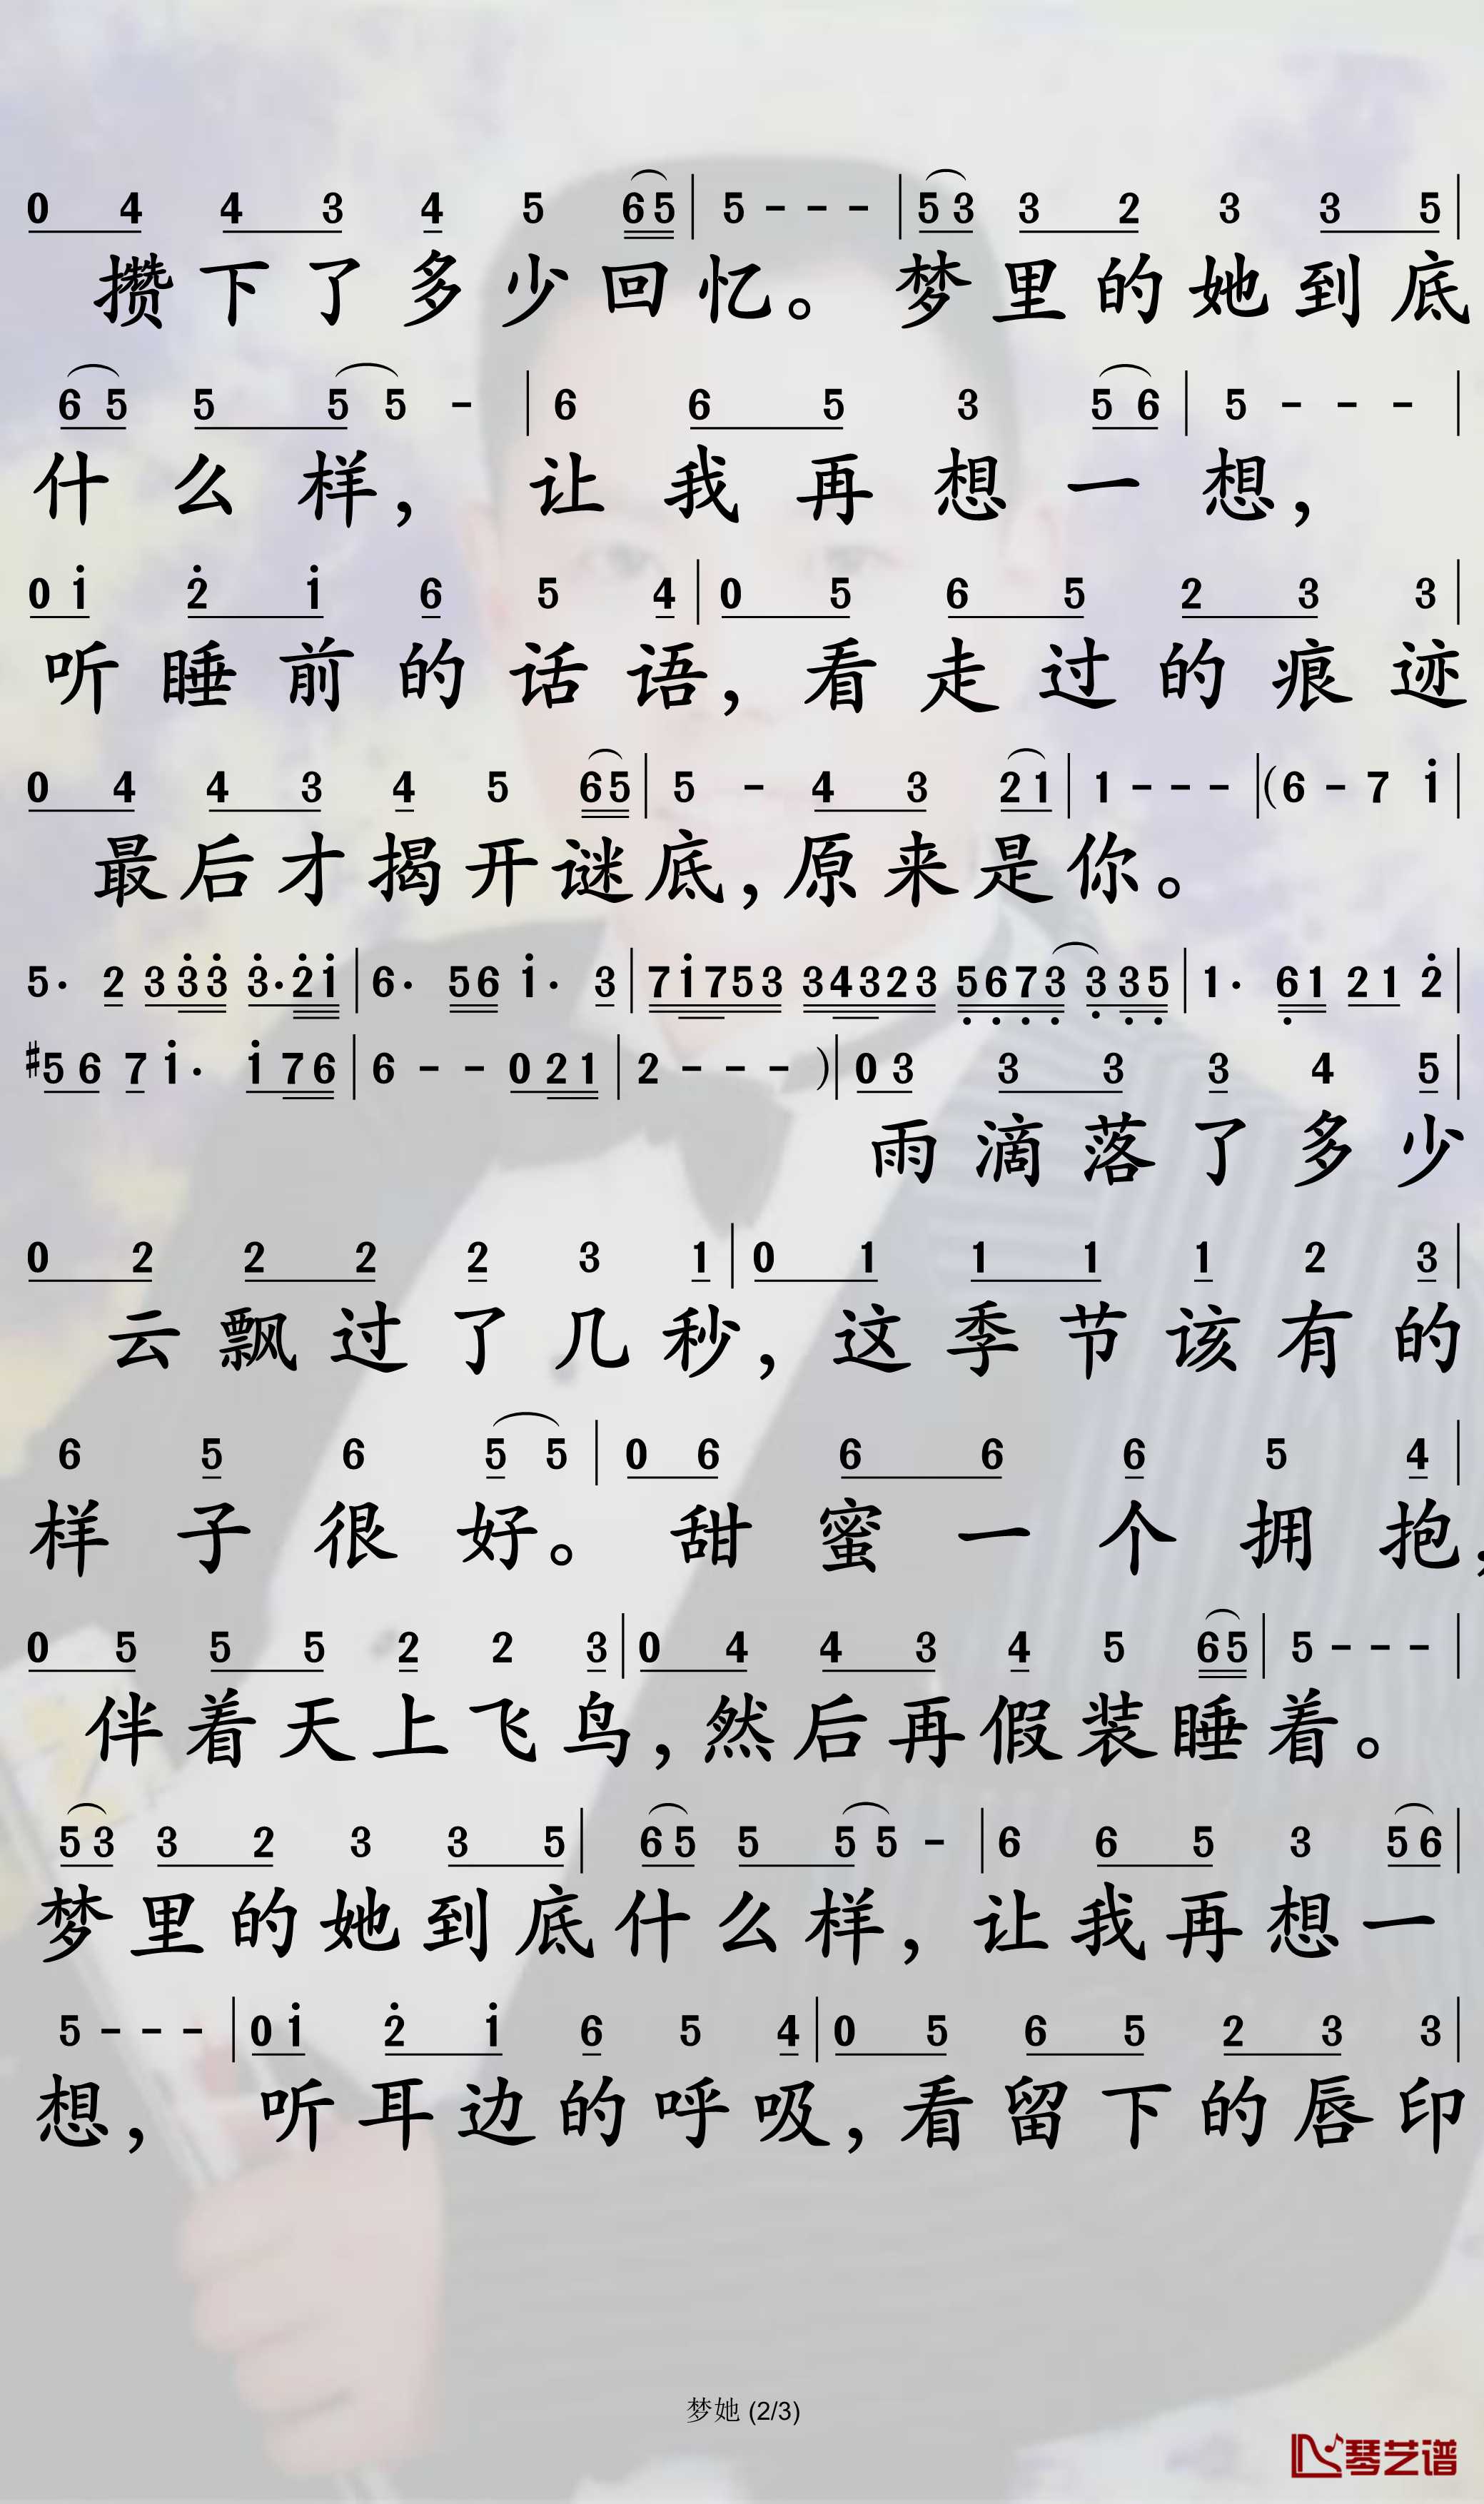 0 4 4 3 4 5 6 5 | 5 - - - | 5 3 3 2 3 3 5 |
攒下了多少回忆。梦里的她到底
6 5 5 5 5 - | 6 6 5 3 5 6 | 5 - - - |
什么样，让我再想一想，
0 1̇ 2̇ 1̇ 6 5 4 | 0 5 6 5 2 3 3 |
听睡前的话语，看走过的痕迹
0 4 4 3 4 5 6 5 | 5 - 4 3 2 1 | 1 - - - | (6 - 7 1̇ |
最后才揭开谜底，原来是你。
5· 2 3 3̇ 3̇ 3̇· 2̇ 1̇ | 6· 5 6 1̇· 3 | 7 1̇ 7 5 3 3 4 3 2 3 5̣ 6̣ 7̣ 3̣ 3̣ 3̣ 5̣ | 1· 6̣ 1 2 1 2̇ |
#5 6 7 1̇· 1̇ 7 6 | 6 - - 0 2 1 | 2 - - - ) | 0 3 3 3 3 4 5 |
雨滴落了多少
0 2 2 2 2 3 1 | 0 1 1 1 1 2 3 |
云飘过了几秒，这季节该有的
6 5 6 5 5 | 0 6 6 6 6 5 4 |
样子很好。甜蜜一个拥抱，
0 5 5 5 2 2 3 | 0 4 4 3 4 5 6 5 | 5 - - - |
伴着天上飞鸟，然后再假装睡着。
5 3 3 2 3 3 5 | 6 5 5 5 5 - | 6 6 5 3 5 6 |
梦里的她到底什么样，让我再想一
5 - - - | 0 1̇ 2̇ 1̇ 6 5 4 | 0 5 6 5 2 3 3 |
想，听耳边的呼吸，看留下的唇印
梦她 (2/3)
琴艺谱